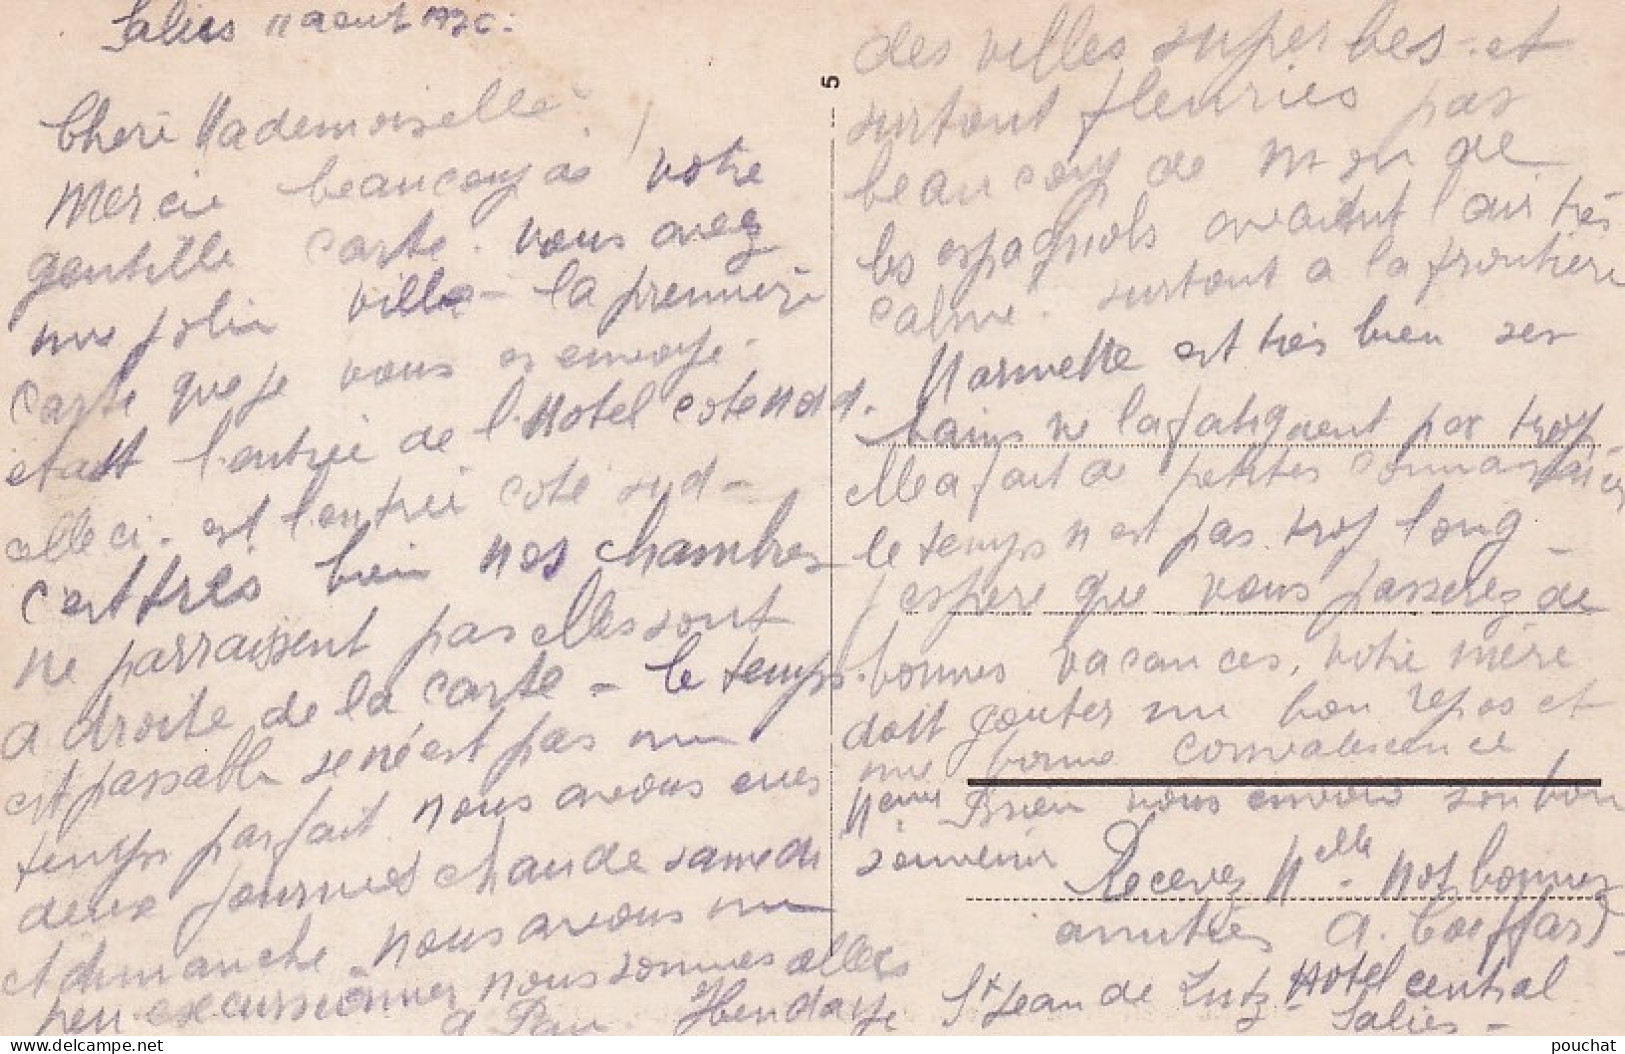 Salies 11 aout 1930.
Cheri Mademoiselle
Mercie beaucoup de votre
gentille carte. vous avez
une jolie villa - la première
carte que je vous ai envoye.
etait l'entrée de l'Hotel cote nord.
celle ci. est l'entrée coté sud -
c'est très bien nos chambres
ne parraissent pas elles sont
a droite de la carte - le temps
est passable se né est pas un
temps parfait. nous avons eues
deux journés chaude samedi
et dimanche. nous avons un
peu excursionner nous sommes allés
a Pau. Hendaye St Jean de Lutz
des villes superbes - et
surtout fleuries pas
beaucoup de monde
les espagnols avaient l'air très
calme. surtout a la frontière
Marinette est très bien ses
bains ne la fatiguent pas trop
elle a fait de petites connaissances
le temps n est pas trop long -
j espere que vous passerez de
bonnes vacances, votre mère
doit gouter un bon repos et
une bonne convalescence
Mme Brien vous envoie son bon
souvenir
Recevez Mlle. nos bonnes
amitiés A. Coeffard
Hotel central
Salies -
5
pouchat